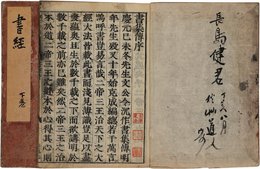 長島健君
書集傳序
慶元己未冬先生文公令沉作書集傳明
年先生歿又十年始克成編總若干萬言
嗚呼書豈易言哉二帝三王治天下之大
經大法皆載此書而淺見薄識豈足以盡
發蘊奧且生於數千載之下而欲講明於
數千載之前亦已難矣然二帝三王之治
本於道二帝三王之道本於心得其心則
書經